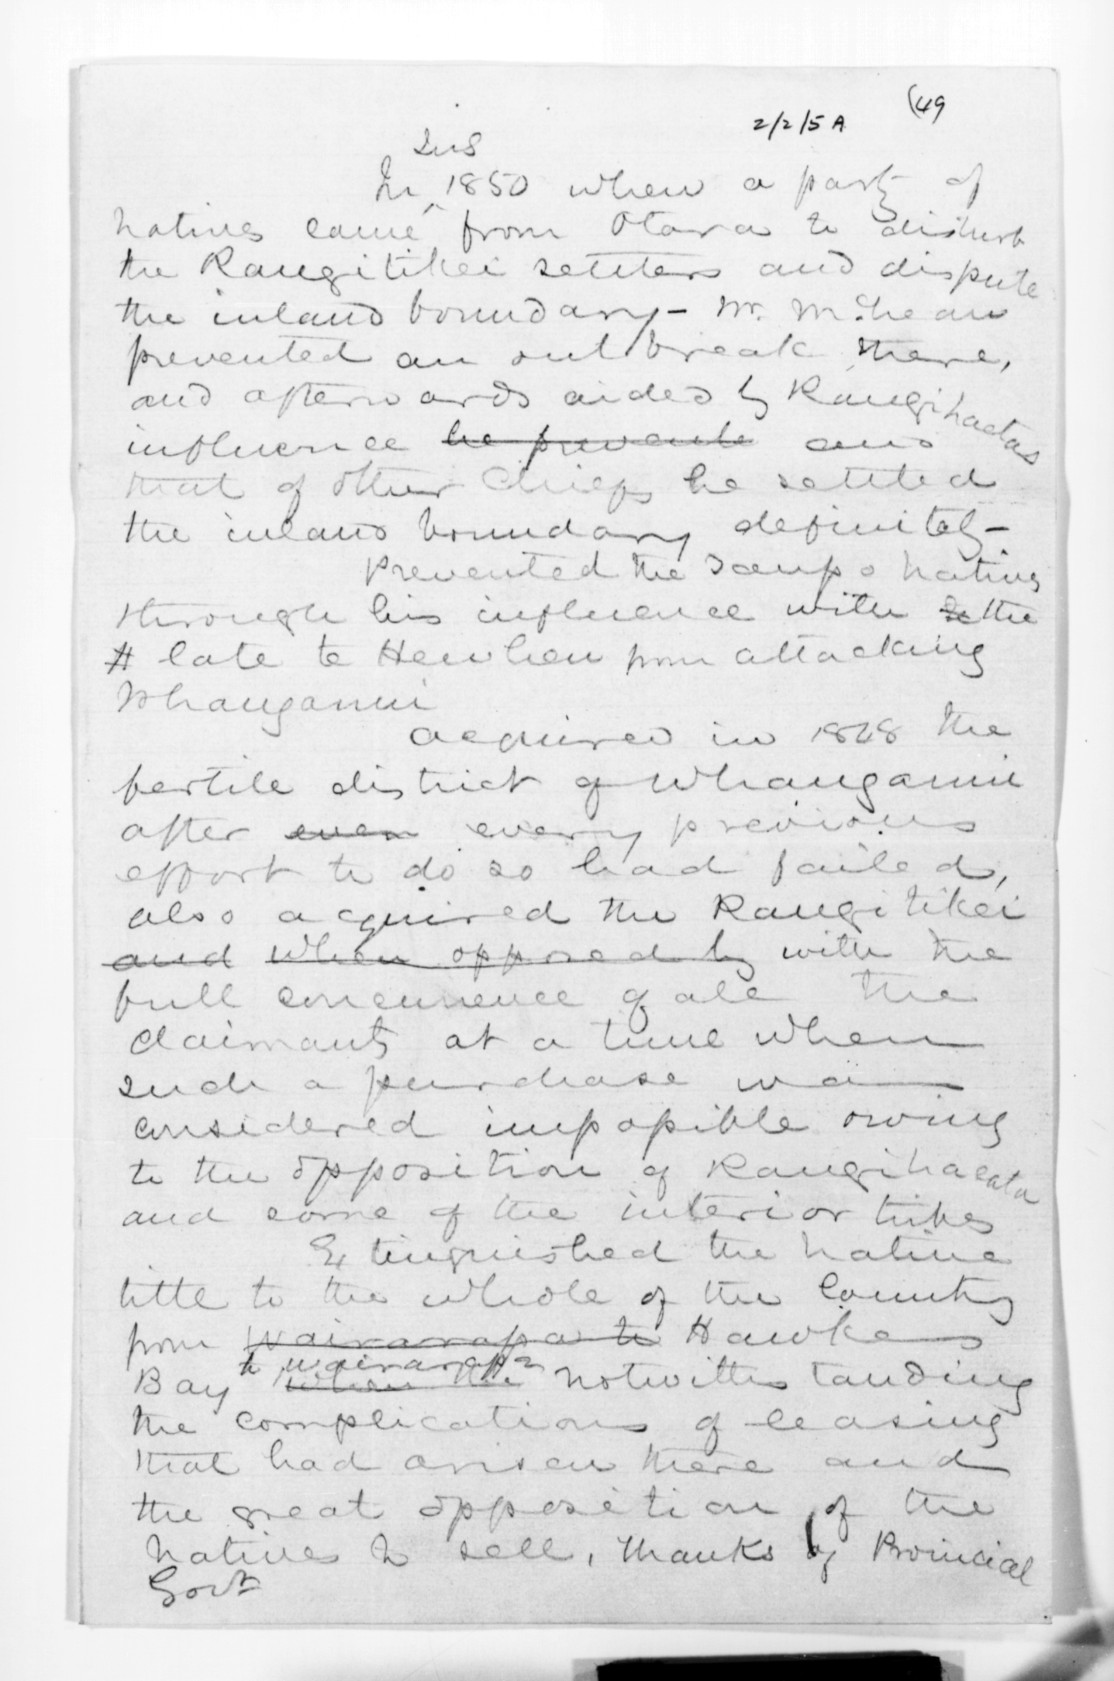 (49
2/2/5A
In 1850 when a party of
natives came from Otara to disturb
the Rangitikei settlers and dispute
the inland boundary - Mr. McLean
prevented an outbreak there,
and afterwards aided by Rangihaetas
influence he prevente and
that of other Chiefs he settled
the inland boundary definitely -
Prevented the Taupo natives
through his influence with the
late te Heuheu from attacking
Whanganui
acquired in 1848 the
fertile district of Whanganui
after even every previous
effort to do so had failed,
also acquired the Rangitikei
and when opposed by with the
full concurrence of all the
Claimants at a time when
such a purchase was
considered impossible owing
to the opposition of Rangihaeata
and some of the interior tribes
Extinguished the native
title to the whole of the Country
from Wairarapa to Hawkes
to Wairarapa
Bay when the notwithstanding
the complications of leasing
that had arisen there and
the great opposition of the
natives to sell, thanks by Provincial
Govt